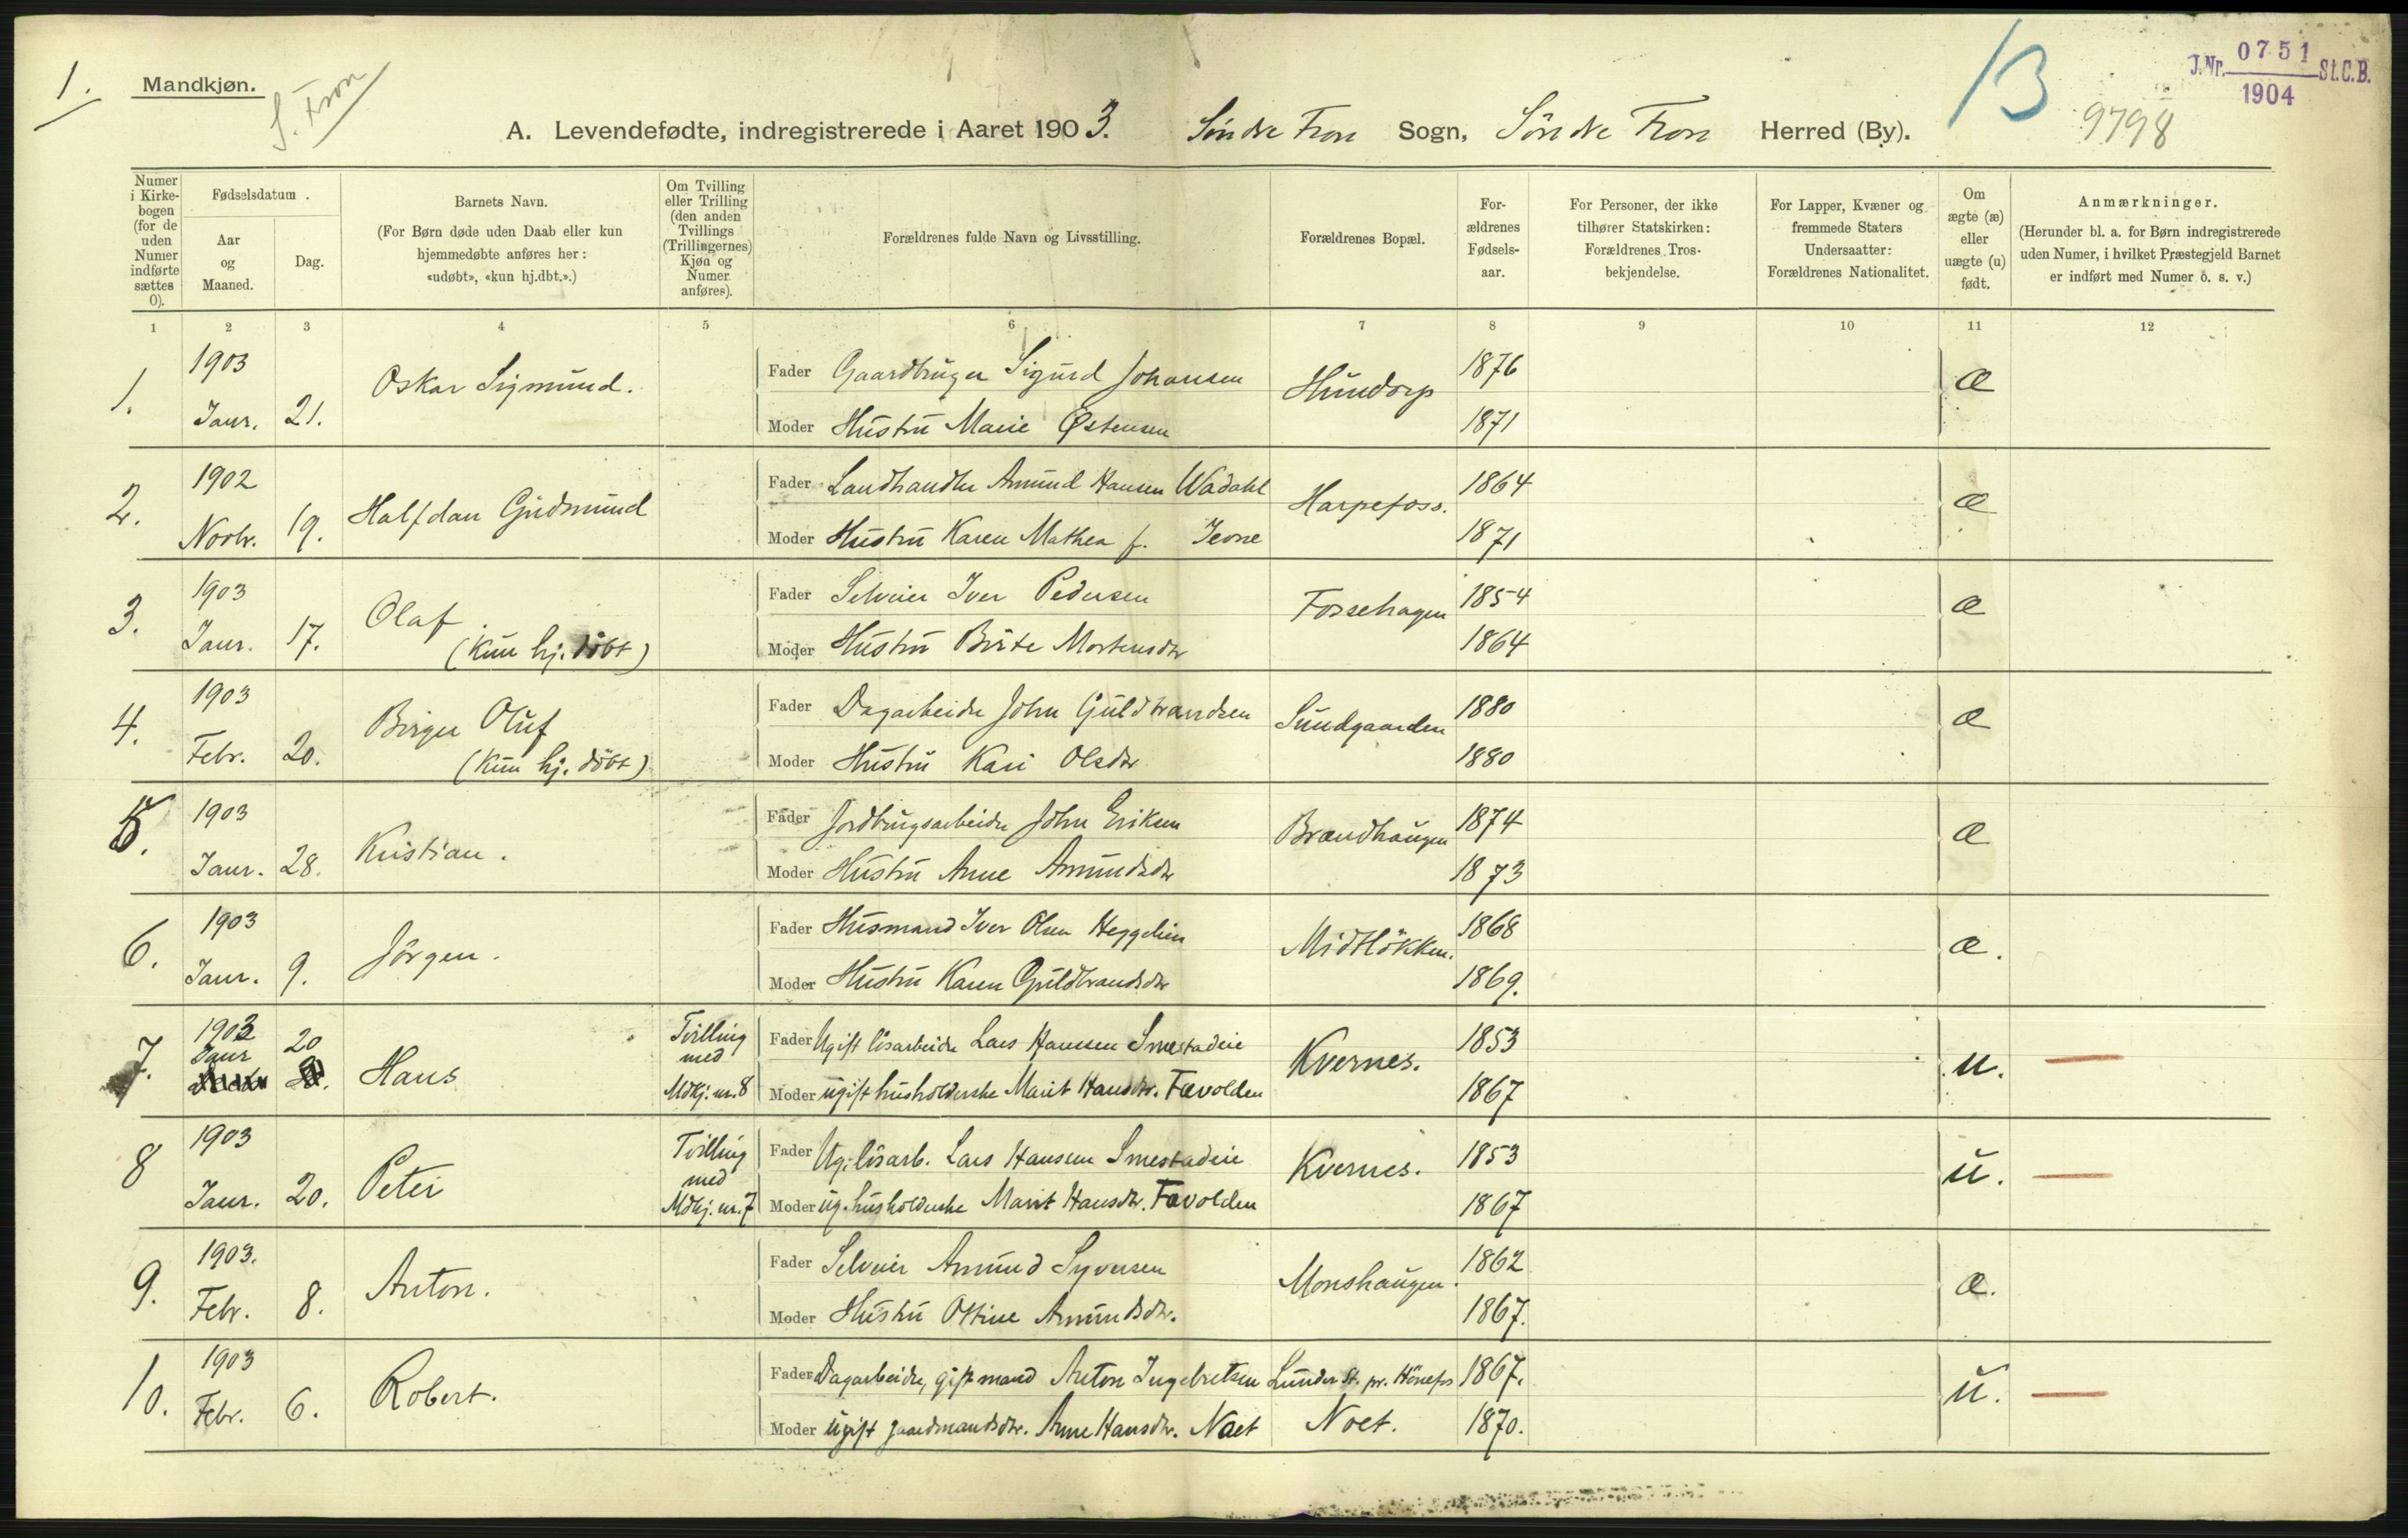 1. Mandkjøn.
S. Fron
13
J.Nr. 0751 St.C.B.
1904
9798
A. Levendefødte, indregistrerede i Aaret 1903. Søndre Fron Sogn, Søndre Fron Herred (By).
Numer i Kirkebogen (for de uden Numer indførte sættes 0).
Fødselsdatum.
Aar og Maaned.
Dag.
Barnets Navn.
(For Børn døde uden Daab eller kun hjemmedøbte anføres her: «udøbt», «kun hj.dbt.».)
Om Tvilling eller Trilling (den anden Tvillings (Trillingernes) Kjøn og Numer anføres).
Forældrenes fulde Navn og Livsstilling.
Forældrenes Bopæl.
Forældrenes Fødselsaar.
For Personer, der ikke tilhører Statskirken: Forældrenes Trosbekjendelse.
For Lapper, Kvæner og fremmede Staters Undersaatter: Forældrenes Nationalitet.
Om ægte (æ) eller uægte (u) født.
Anmærkninger.
(Herunder bl. a. for Børn indregistrerede uden Numer, i hvilket Præstegjeld Barnet er indført med Numer o. s. v.)
1 2 3 4 5 6 7 8 9 10 11 12
1. 1903 Janr. 21. Oskar Sigmund. Fader Gaardbruger Sigurd Johansen Hundorp 1876 æ
Moder Hustru Marie Østensen 1871
2. 1902 Novbr. 19. Halfdan Gudmund Fader Landhandler Amund Hansen Wadahl Harpefoss. 1864 æ
Moder Hustru Karen Mathea f. Jevne 1871
3. 1903 Janr. 17. Olaf (Kun hj. døbt) Fader Selveier Iver Pedersen Fossehagen 1854 æ
Moder Hustru Birte Mortensdtr 1864
4. 1903 Febr. 20. Birger Oluf (Kun hj. døbt) Fader Dagarbeider John Guldbrandsen Sundgaarden 1880 æ
Moder Hustru Kari Olsdtr 1880
5. 1903 Janr. 28. Kristian. Fader Jordbrugsarbeider John Eriksen Brandhaugen 1874 æ
Moder Hustru Anne Amundsdtr 1873
6. 1903 Janr. 9. Jörgen. Fader Husmand Iver Olsen Heggelien Midtløkken. 1868 æ.
Moder Hustru Karen Guldbrandsdtr 1869.
7. 1903 Janr 20 Hans Tvilling med Mdkj. nr. 8 Fader Ugift løsarbeider Lars Hansen Smestadeie Kvernes. 1853 u. —
Moder ugift husholderske Marit Hansdtr. Fævolden 1867
8 1903 Janr. 20. Peter Tvilling med Mdkj. nr. 7 Fader Ug. løsarb. Lars Hansen Smestadeie Kvernes. 1853 u. —
Moder ug. husholderske Marit Hansdtr. Fævolden 1867
9. 1903. Febr. 8. Anton. Fader Selveier Amund Syversen Monshaugen. 1862 æ.
Moder Hustru Ottine Amundsdtr. 1867.
10. 1903 Febr. 6. Robert. Fader Dagarbeider, gift mand Anton Ingebretsen Lunder St. pr. Hönefos 1867. u. —
Moder Ugift gaardmandsdtr. Anne Hansdtr. Noet Noet. 1870.